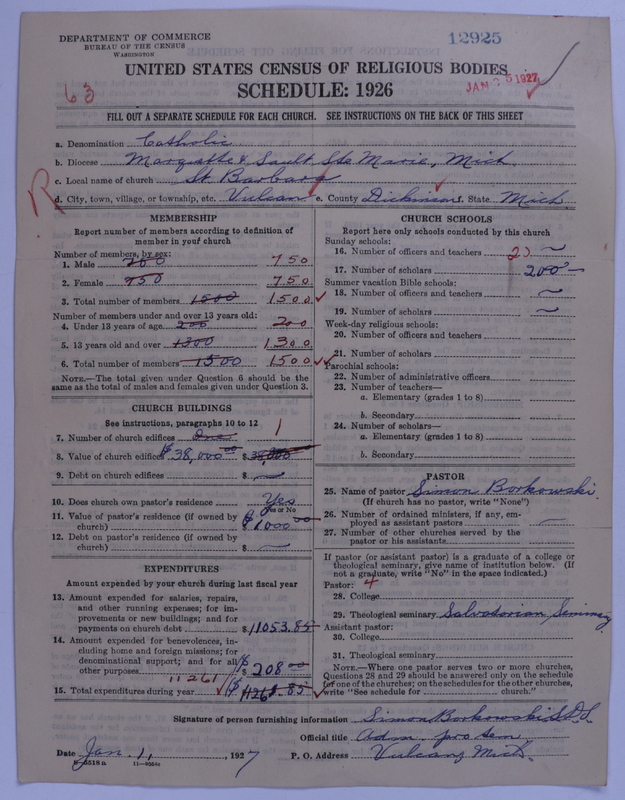 DEPARTMENT OF COMMERCE
BUREAU OF THE CENSUS
WASHINGTON
12925
UNITED STATES CENSUS OF RELIGIOUS BODIES
SCHEDULE: 1926
63
JAN 25 1927
FILL OUT A SEPARATE SCHEDULE FOR EACH CHURCH. SEE INSTRUCTIONS ON THE BACK OF THIS SHEET
a. Denomination Catholic
b. Diocese Marquette & Sault Ste Marie, Mich.
c. Local name of church St. Barbara
R
d. City, town, village, or township, etc. Vulcan e. County Dickinson f. State Mich
MEMBERSHIP
Report number of members according to definition of
member in your church
Number of members, by sex:
1. Male 750
2. Female 750 750
3. Total number of members 1500 1500
Number of members under and over 13 years old:
4. Under 13 years of age 200 200
5. 13 years old and over 1300 1300
6. Total number of members 1500 1500
NOTE.—The total given under Question 6 should be the
same as the total of males and females given under Question 3.
CHURCH BUILDINGS
See instructions, paragraphs 10 to 12
7. Number of church edifices One 1
8. Value of church edifices $38,000.00 $ 38,000
9. Debt on church edifices $ —
10. Does church own pastor's residence Yes
Yes or No
11. Value of pastor's residence (if owned by
church) $1000.00
12. Debt on pastor's residence (if owned by
church) $ —
EXPENDITURES
Amount expended by your church during last fiscal year
13. Amount expended for salaries, repairs,
and other running expenses; for im-
provements or new buildings; and for
payments on church debt $11053.85
14. Amount expended for benevolences, in-
cluding home and foreign missions; for
denominational support; and for all
other purposes $208.00
11261
15. Total expenditures during year $11261.85
CHURCH SCHOOLS
Report here only schools conducted by this church
Sunday schools:
16. Number of officers and teachers 2
17. Number of scholars 200 —
Summer vacation Bible schools:
18. Number of officers and teachers
19. Number of scholars
Week-day religious schools:
20. Number of officers and teachers
21. Number of scholars
Parochial schools:
22. Number of administrative officers
23. Number of teachers—
a. Elementary (grades 1 to 8)
b. Secondary
24. Number of scholars—
a. Elementary (grades 1 to 8)
b. Secondary
PASTOR
25. Name of pastor Simon Borkowski
(If church has no pastor, write "None")
26. Number of ordained ministers, if any, em-
ployed as assistant pastors —
27. Number of other churches served by the
pastor or his assistants
If pastor (or assistant pastor) is a graduate of a college or
theological seminary, give name of institution below. (If
not a graduate, write "No" in the space indicated.)
Pastor: 4
28. College
29. Theological seminary Salvatorian Seminary
Assistant pastor:
30. College
31. Theological seminary
NOTE.—Where one pastor serves two or more churches,
Questions 28 and 29 should be answered only on the schedule
for one of the churches; on the schedules for the other churches,
write "See schedule for church."
Signature of person furnishing information Simon Borkowski S.D.S.
Official title Adm. pro tem
Date Jan. 1, 1927 P. O. Address Vulcan, Mich.
11—9554c